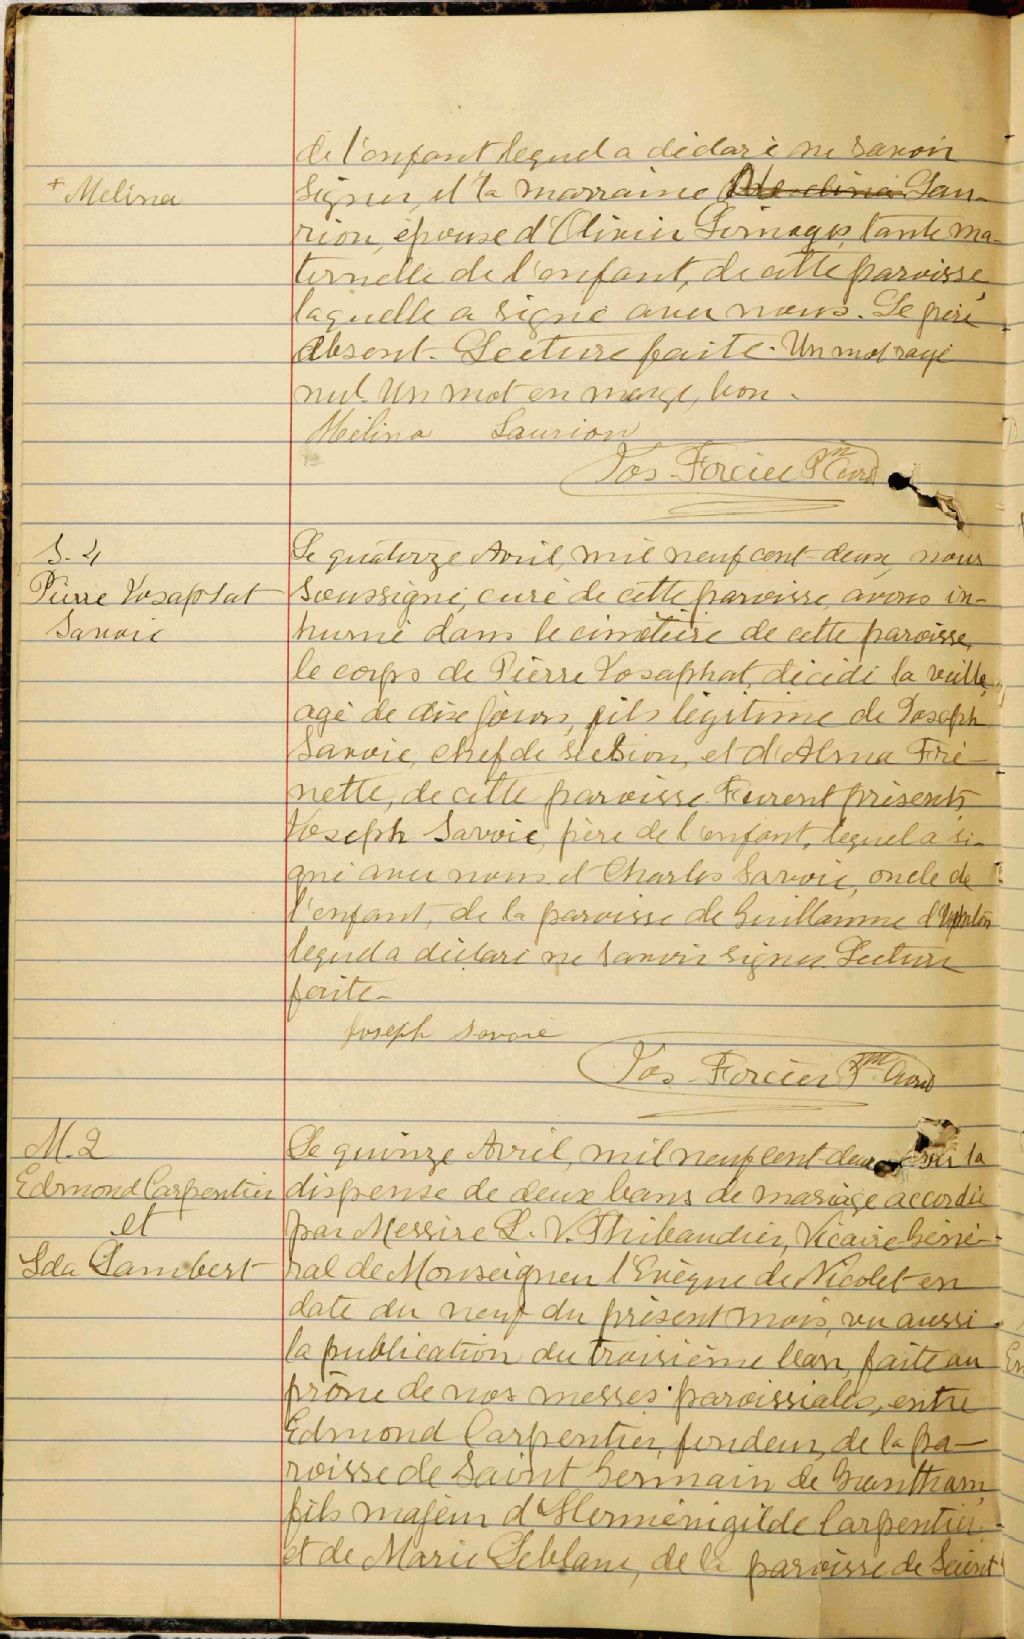 de l'enfant lequel a déclaré ne savoir
+ Melina
signer, et la marraine Lau-
rion, épouse d'Olivier Limoges, tante ma-
ternelle de l'enfant, de cette paroisse,
laquelle a signé avec nous. Le père
absent. Lecture faite. Un mot rayé
nul. Un mot en marge, bon.
Mélina Laurion
Jos. Forcier Ptre Curé
S. 4
Pierre Josaphat
Savoie
Le quatorze Avril, mil neuf cent deux, nous
soussigné, curé de cette paroisse, avons in-
humé dans le cimetière de cette paroisse,
le corps de Pierre Josaphat, décédé la veille,
agé de dix jours, fils légitime de Joseph
Savoie, chef de section, et d'Alma Fré-
nette, de cette paroisse. Furent présents,
Joseph Savoie, père de l'enfant, lequel a si-
gné avec nous et Charles Savoie, oncle de
l'enfant, de la paroisse de Guillaume d'Upton
lequel a déclaré ne savoir signer. Lecture
faite.
Joseph Savoie
Jos. Forcier Ptre Curé
M. 2
Edmond Carpentier
et
Ida Lambert
Le quinze Avril, mil neuf cent deux, vu la
dispense de deux bans de mariage accordée
par Messire L. V. Thibaudier, Vicaire Géné-
ral de Monseigneur l'Evêque de Nicolet en
date du neuf du présent mois, vu aussi
la publication du troisième ban, faite au
prône de nos messes paroissiales, entre
Edmond Carpentier, fondeur, de la pa-
roisse de Saint Germain de Grantham,
fils majeur d'Herménigilde Carpentier
et de Marie Leblanc, de la paroisse de Saint